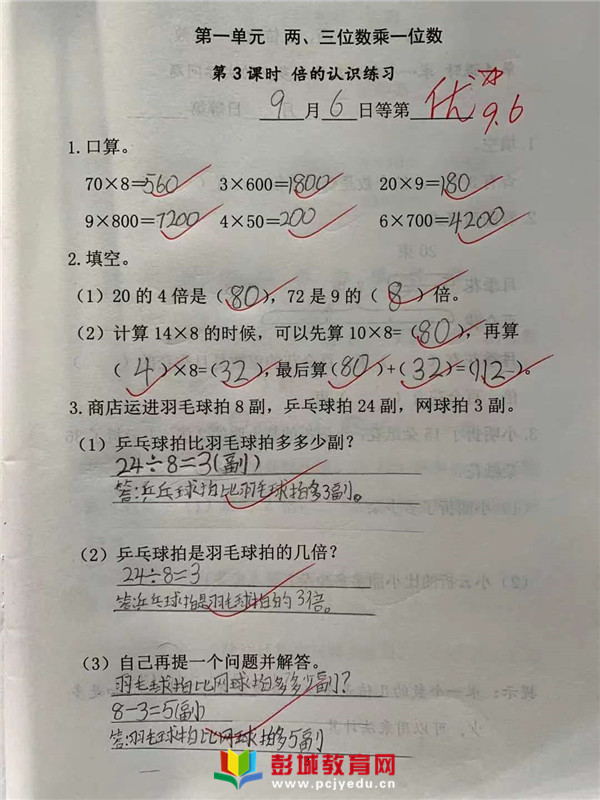 第一单元 两、三位数乘一位数
第3课时 倍的认识练习
9月6日等第优☆
9.6
1.口算。
70×8=560 3×600=1800 20×9=180
9×800=7200 4×50=200 6×700=4200
2.填空。
（1）20的4倍是（80），72是9的（8）倍。
（2）计算14×8的时候，可以先算10×8=（80），再算
（4）×8=（32），最后算（80）+（32）=（112）。
3.商店运进羽毛球拍8副，乒乓球拍24副，网球拍3副。
（1）乒乓球拍比羽毛球拍多多少副？
24÷8=3(副)
答:乒乓球拍比羽毛球拍多3副。
（2）乒乓球拍是羽毛球拍的几倍？
24÷8=3
答:乒乓球拍是羽毛球拍的3倍。
（3）自己再提一个问题并解答。
羽毛球拍比网球拍多多少副?
8-3=5(副)
答:羽毛球拍比网球拍多5副
彭城教育网
www.pcjyedu.cn